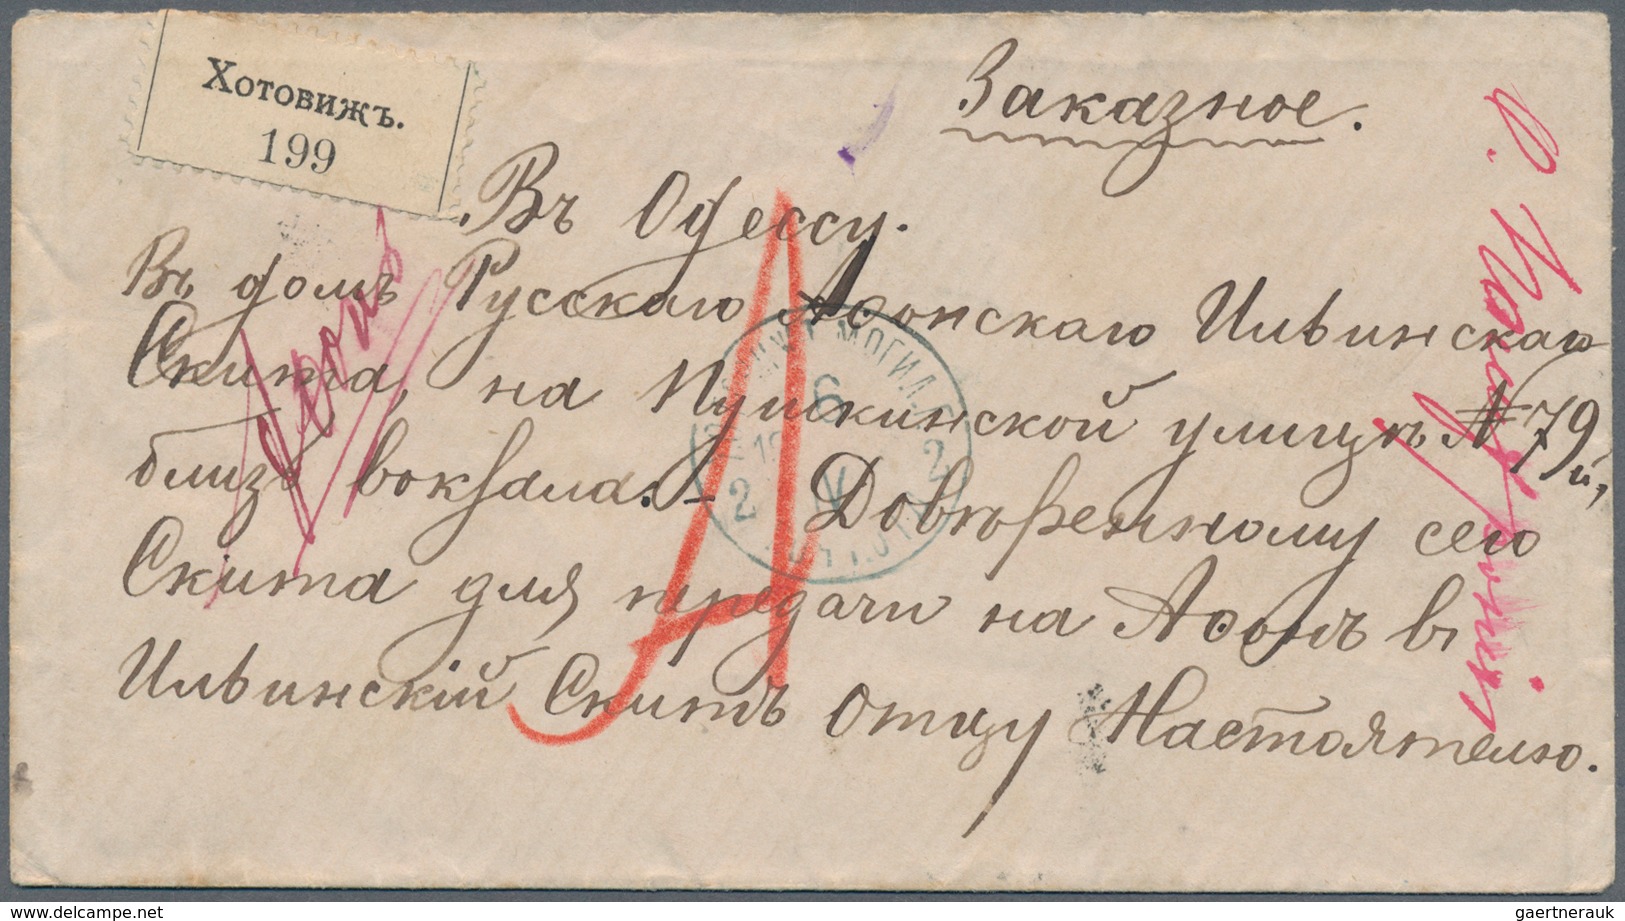 Хотовижъ.
199
Заказное.
Въ Одессу.
Въ домъ Русскаго Аѳонскаго Ильинскаго
Скита, на Пушкинской улицѣ № 79й,
близъ вокзала:- Довѣренному сего
Скита для передачи на Аѳонъ въ
Ильинскій Скитъ отцу Настоятелю.
МОГИЛ.Г.
6
2 IV 2
А
gaertnerauk